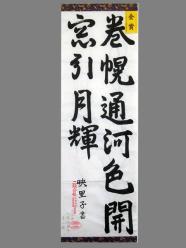 金賞
巻幌通河色開
窓引月輝
映里子書